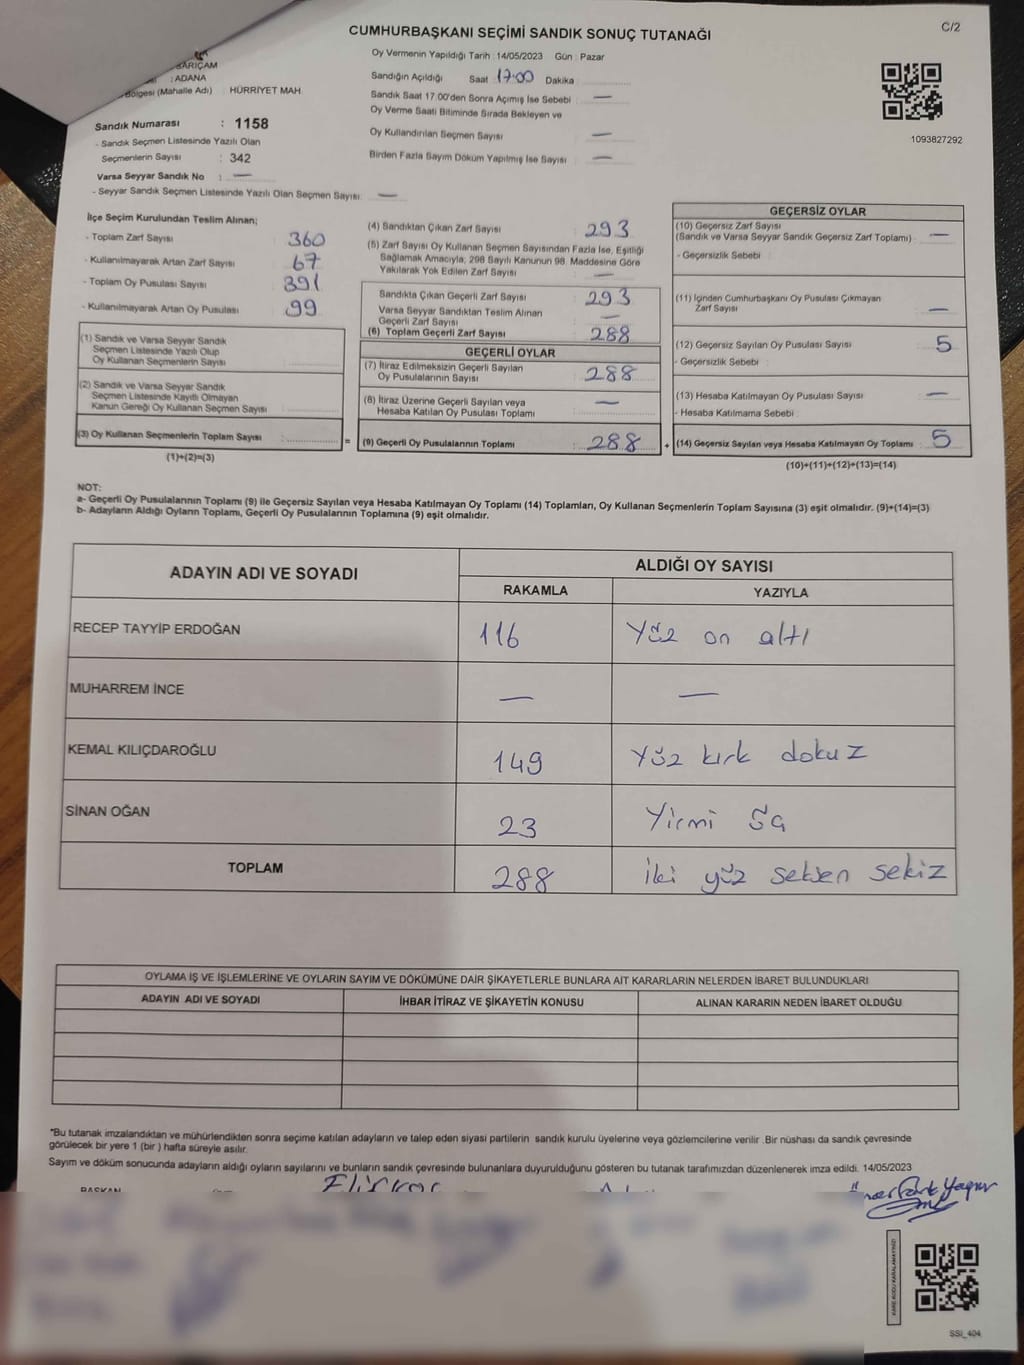 CUMHURBAŞKANI SEÇİMİ SANDIK SONUÇ TUTANAĞI
C/2
Oy Vermenin Yapıldığı Tarih : 14/05/2023 Gün : Pazar
SARIÇAM
: ADANA
Bölgesi (Mahalle Adı) : HÜRRİYET MAH.
Sandığın Açıldığı Saat 17:00 Dakika
Sandık Saat 17.00'den Sonra Açımış İse Sebebi : —
Oy Verme Saati Bitiminde Sırada Bekleyen ve
Oy Kullandırılan Seçmen Sayısı : —
Birden Fazla Sayım Döküm Yapılmış İse Sayısı : —
1093827292
Sandık Numarası : 1158
- Sandık Seçmen Listesinde Yazılı Olan
Seçmenlerin Sayısı : 342
Varsa Seyyar Sandık No : —
- Seyyar Sandık Seçmen Listesinde Yazılı Olan Seçmen Sayısı: —
İlçe Seçim Kurulundan Teslim Alınan;
- Toplam Zarf Sayısı : 360
- Kullanılmayarak Artan Zarf Sayısı : 67
- Toplam Oy Pusulası Sayısı : 391
- Kullanılmayarak Artan Oy Pusulası : 99
(1) Sandık ve Varsa Seyyar Sandık
Seçmen Listesinde Yazılı Olup
Oy Kullanan Seçmenlerin Sayısı :
(2) Sandık ve Varsa Seyyar Sandık
Seçmen Listesinde Kayıtlı Olmayan
Kanun Gereği Oy Kullanan Seçmen Sayısı :
(3) Oy Kullanan Seçmenlerin Toplam Sayısı :
=
(1)+(2)=(3)
(4) Sandıktan Çıkan Zarf Sayısı : 293
(5) Zarf Sayısı Oy Kullanan Seçmen Sayısından Fazla İse, Eşitliği
Sağlamak Amacıyla, 298 Sayılı Kanunun 98. Maddesine Göre
Yakılarak Yok Edilen Zarf Sayısı : —
Sandıkta Çıkan Geçerli Zarf Sayısı : 293
Varsa Seyyar Sandıktan Teslim Alınan
Geçerli Zarf Sayısı : —
(6) Toplam Geçerli Zarf Sayısı : 288
GEÇERLİ OYLAR
(7) İtiraz Edilmeksizin Geçerli Sayılan
Oy Pusulalarının Sayısı : 288
(8) İtiraz Üzerine Geçerli Sayılan veya
Hesaba Katılan Oy Pusulası Toplamı : —
(9) Geçerli Oy Pusulalarının Toplamı : 288
+
GEÇERSİZ OYLAR
(10) Geçersiz Zarf Sayısı
(Sandık ve Varsa Seyyar Sandık Geçersiz Zarf Toplamı) : —
- Geçersizlik Sebebi :
(11) İçinden Cumhurbaşkanı Oy Pusulası Çıkmayan
Zarf Sayısı : —
(12) Geçersiz Sayılan Oy Pusulası Sayısı : 5
- Geçersizlik Sebebi :
(13) Hesaba Katılmayan Oy Pusulası Sayısı : —
- Hesaba Katılmama Sebebi :
(14) Geçersiz Sayılan veya Hesaba Katılmayan Oy Toplamı : 5
(10)+(11)+(12)+(13)=(14)
NOT:
a- Geçerli Oy Pusulalarının Toplamı (9) ile Geçersiz Sayılan veya Hesaba Katılmayan Oy Toplamı (14) Toplamları, Oy Kullanan Seçmenlerin Toplam Sayısına (3) eşit olmalıdır. (9)+(14)=(3)
b- Adayların Aldığı Oyların Toplamı, Geçerli Oy Pusulalarının Toplamına (9) eşit olmalıdır.
ADAYIN ADI VE SOYADI ALDIĞI OY SAYISI
RAKAMLA YAZIYLA
RECEP TAYYİP ERDOĞAN 116 Yüz on altı
MUHARREM İNCE — —
KEMAL KILIÇDAROĞLU 149 Yüz kırk dokuz
SİNAN OĞAN 23 Yirmi üç
TOPLAM 288 iki yüz seksen sekiz
OYLAMA İŞ VE İŞLEMLERİNE VE OYLARIN SAYIM VE DÖKÜMÜNE DAİR ŞİKAYETLERLE BUNLARA AİT KARARLARIN NELERDEN İBARET BULUNDUKLARI
ADAYIN ADI VE SOYADI İHBAR İTİRAZ VE ŞİKAYETİN KONUSU ALINAN KARARIN NEDEN İBARET OLDUĞU
*Bu tutanak imzalandıktan ve mühürlendikten sonra seçime katılan adayların ve talep eden siyasi partilerin sandık kurulu üyelerine veya gözlemcilerine verilir .Bir nüshası da sandık çevresinde
görülecek bir yere 1 (bir ) hafta süreyle asılır.
Sayım ve döküm sonucunda adayların aldığı oyların sayılarını ve bunların sandık çevresinde bulunanlara duyurulduğunu gösteren bu tutanak tarafımızdan düzenlenerek imza edildi. 14/05/2023
BAŞKAN
SSI_404